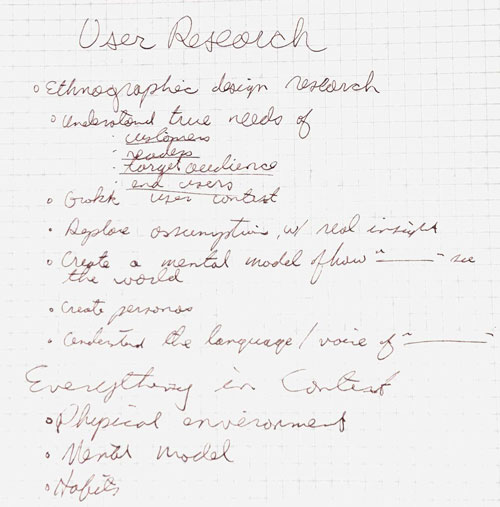 User Research
• Ethnographic design research
• Understand true needs of
· customers
· readers
· target audience
· end users
• Grokk user context
• Replace assumptions w/ real insight
• Create a mental model of how "______" see
the world
• Create personas
• Understand the language / voice of "______"
Everything in Context
• Physical environment
• Mental model
• Habits